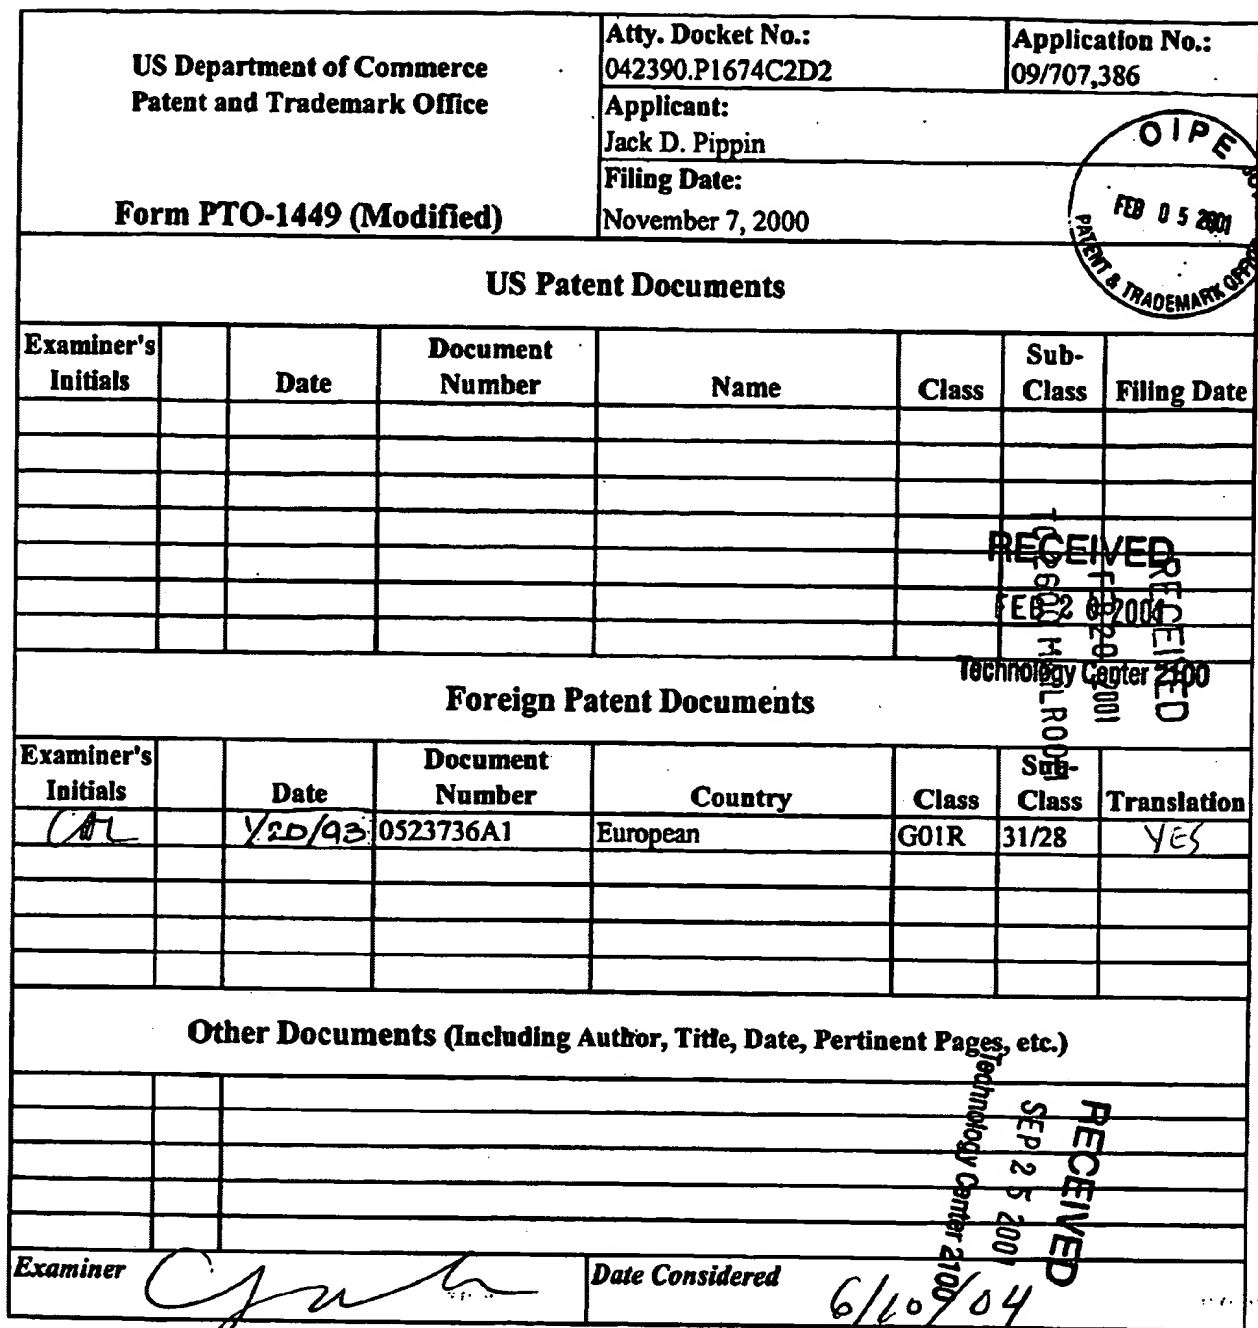 US Department of Commerce
Patent and Trademark Office
Form PTO-1449 (Modified)
Atty. Docket No.:
042390.P1674C2D2
Application No.:
09/707,386
Applicant:
Jack D. Pippin
Filing Date:
November 7, 2000
OIPE
FEB 05 2001
PATENT & TRADEMARK OFFICE
US Patent Documents
Examiner's Initials Date Document Number Name Class Sub-Class Filing Date
RECEIVED
FEB 2 2001
Technology Center 2100
RECEIVED
FEB 20 2001
TC 2600 MAILROOM
Foreign Patent Documents
Examiner's Initials Date Document Number Country Class Sub-Class Translation
1/20/93 0523736A1 European G01R 31/28 YES
Other Documents (Including Author, Title, Date, Pertinent Pages, etc.)
RECEIVED
SEP 25 2001
Technology Center 2100
Examiner
Date Considered
6/10/04